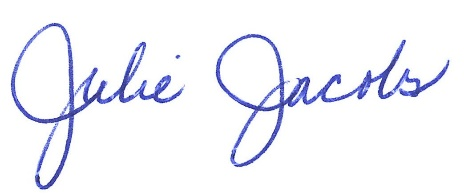 Julie Jacobs